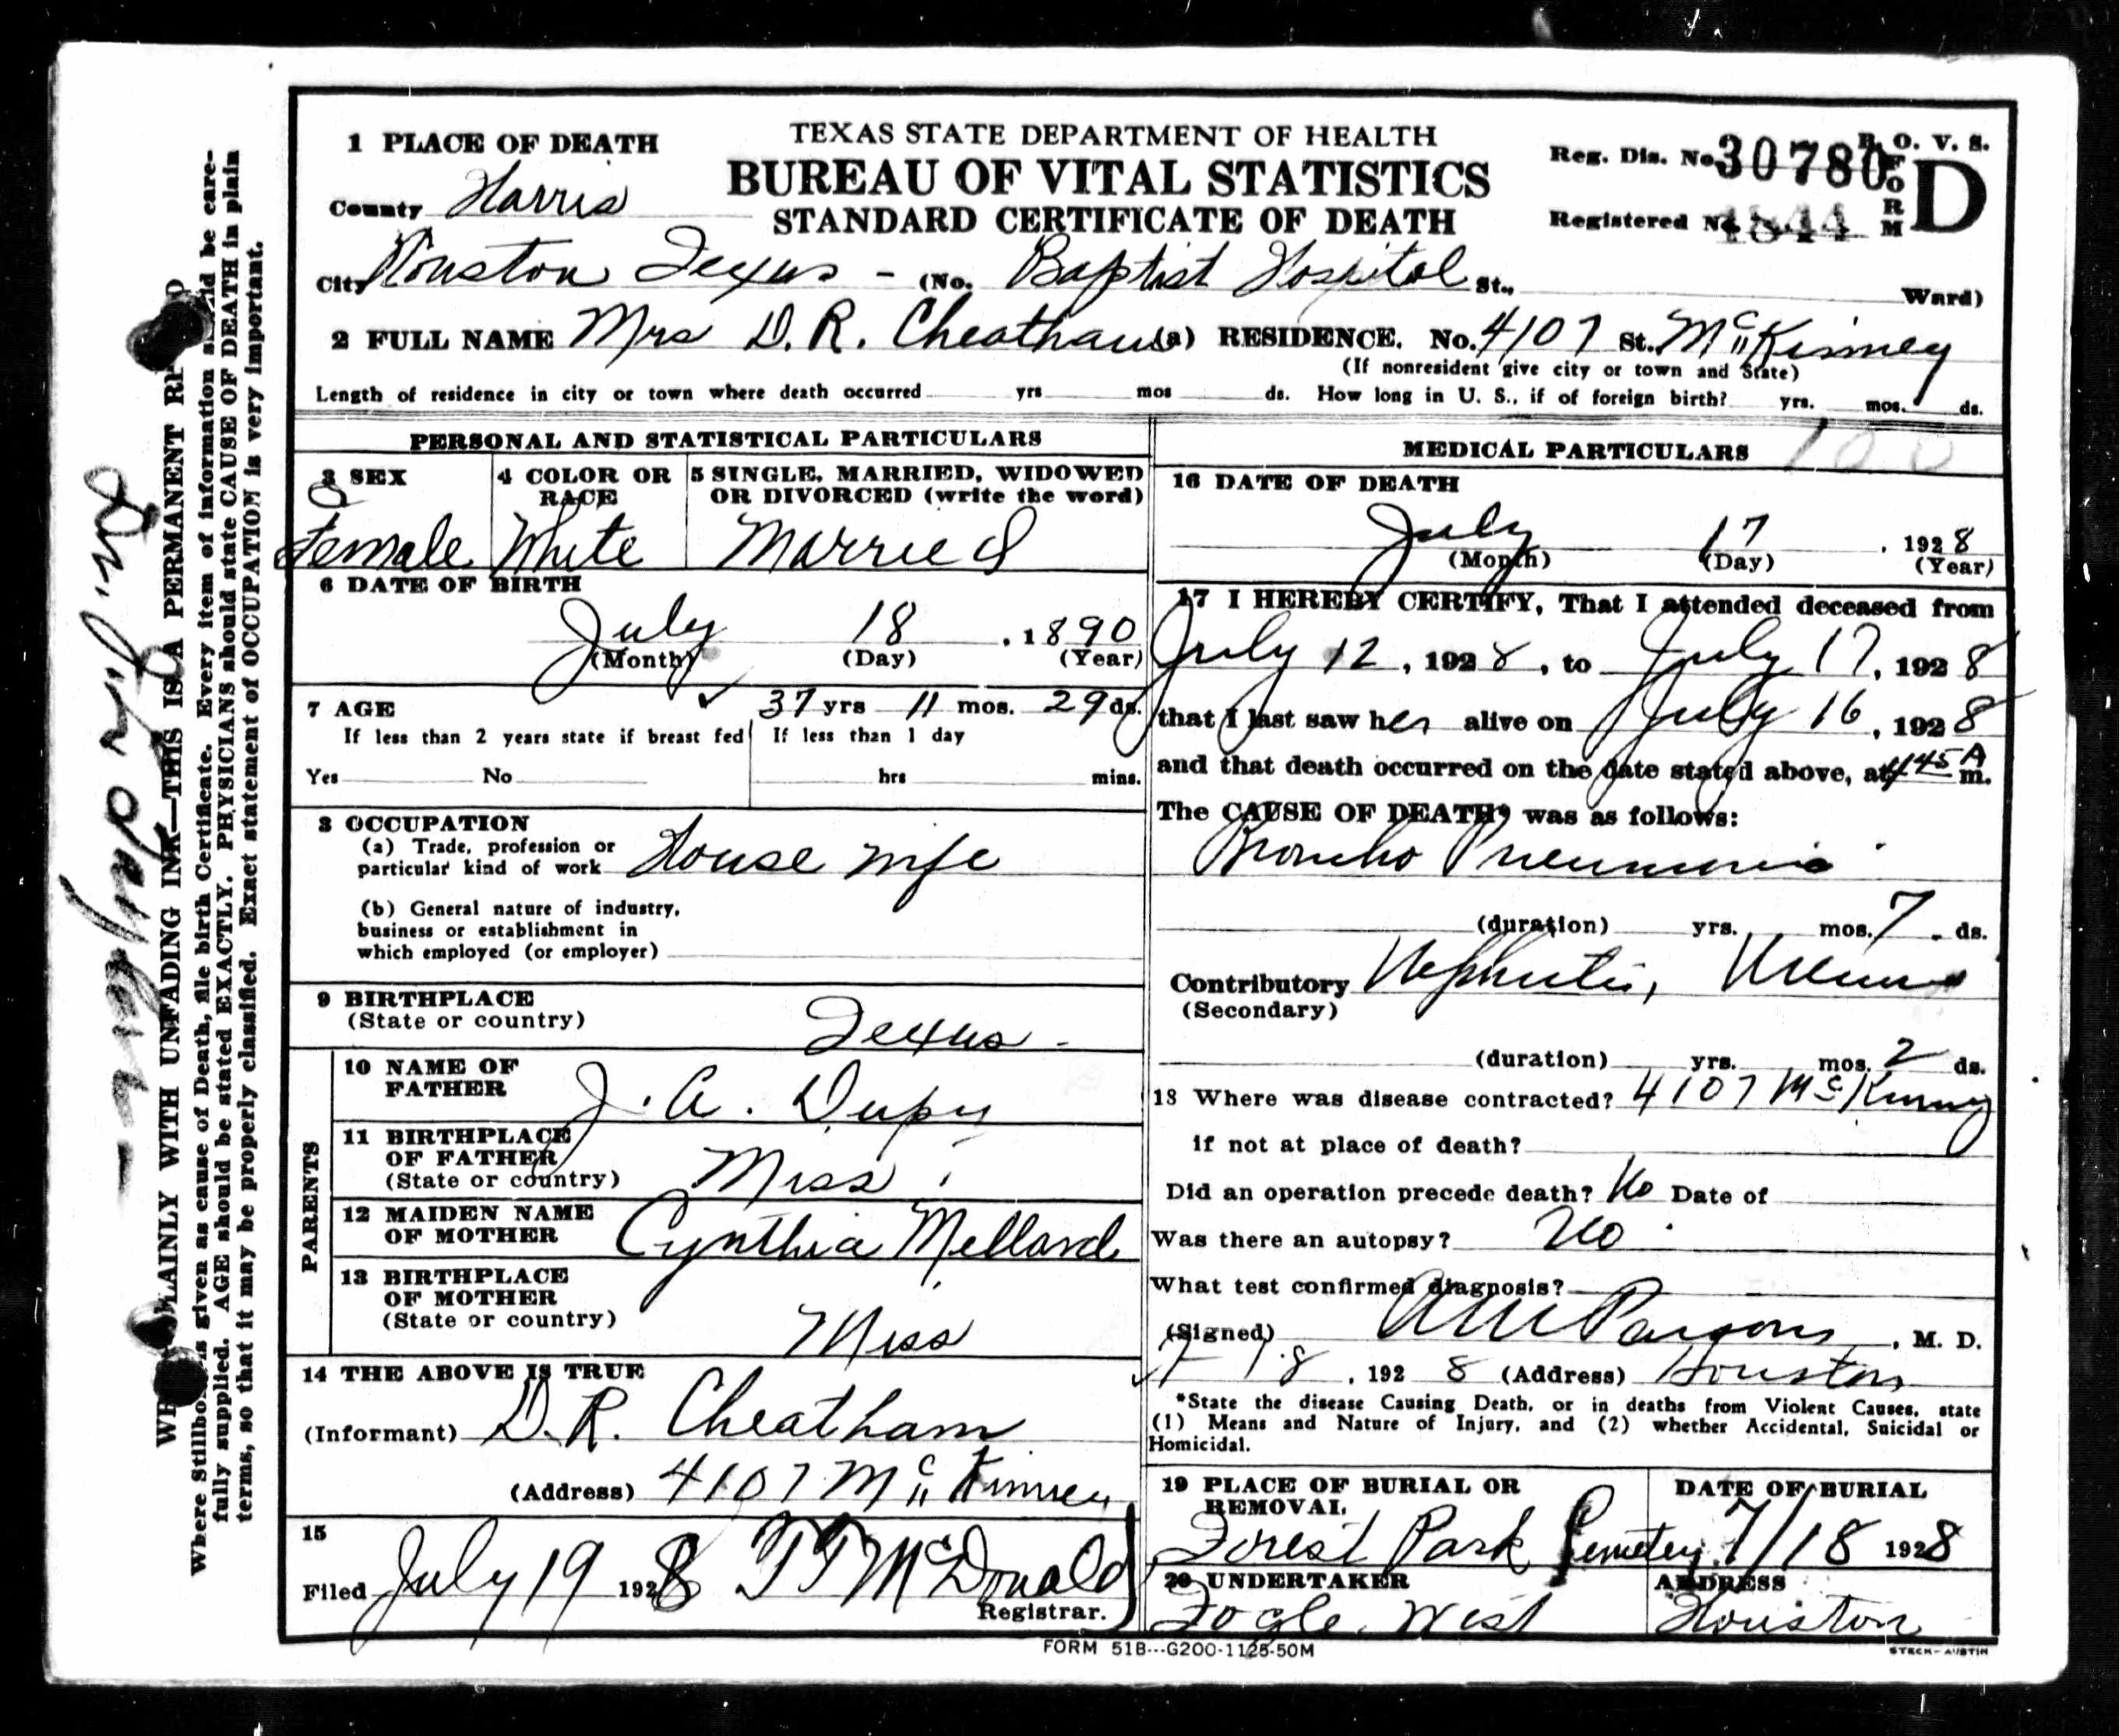 TEXAS STATE DEPARTMENT OF HEALTH
BUREAU OF VITAL STATISTICS
STANDARD CERTIFICATE OF DEATH
Reg. Dis. No. 30780
B. O. V. S.
FORM D
Registered No. 1844
1 PLACE OF DEATH
County Harris
City Houston Texas - (No. Baptist Hospital St., Ward)
2 FULL NAME Mrs D. R. Cheatham (a) RESIDENCE. No. 4107 St. McKinney
(If nonresident give city or town and State)
Length of residence in city or town where death occurred yrs mos ds. How long in U. S., if of foreign birth? yrs. mos. ds.
PERSONAL AND STATISTICAL PARTICULARS
3 SEX
Female
4 COLOR OR RACE
White
5 SINGLE, MARRIED, WIDOWED
OR DIVORCED (write the word)
Married
6 DATE OF BIRTH
July 18, 1890
(Month) (Day) (Year)
7 AGE 37 yrs 11 mos. 29 ds.
If less than 2 years state if breast fed If less than 1 day
Yes No hrs mins.
8 OCCUPATION
(a) Trade, profession or
particular kind of work House wife
(b) General nature of industry,
business or establishment in
which employed (or employer)
9 BIRTHPLACE
(State or country) Texas -
PARENTS
10 NAME OF
FATHER J. A. Dupy
11 BIRTHPLACE
OF FATHER
(State or country) Miss.
12 MAIDEN NAME
OF MOTHER Cynthia Mellard
13 BIRTHPLACE
OF MOTHER
(State or country) Miss
14 THE ABOVE IS TRUE
(Informant) D. R. Cheatham
(Address) 4107 McKinney
15
Filed July 19 1928 T T McDonald
Registrar.
MEDICAL PARTICULARS 100
16 DATE OF DEATH
July 17, 1928
(Month) (Day) (Year)
17 I HEREBY CERTIFY, That I attended deceased from
July 12, 1928, to July 17, 1928
that I last saw her alive on July 16, 1928
and that death occurred on the date stated above, at 4 45 A m.
The CAUSE OF DEATH* was as follows:
Broncho Pneumonia
(duration) yrs. mos. 7 ds.
Contributory Nephritis,
(Secondary)
(duration) yrs. mos. 2 ds.
18 Where was disease contracted? 4107 McKinney
if not at place of death?
Did an operation precede death? No Date of
Was there an autopsy? No
What test confirmed diagnosis?
(Signed) Parsons, M. D.
7 18, 1928 (Address) Houston
*State the disease Causing Death, or in deaths from Violent Causes, state
(1) Means and Nature of Injury, and (2) whether Accidental, Suicidal or
Homicidal.
19 PLACE OF BURIAL OR
REMOVAL
Forest Park Cemetery
DATE OF BURIAL
7/18 1928
20 UNDERTAKER
Fogle West
ADDRESS
Houston
FORM 51B---G200-1125-50M
STECK-AUSTIN
PLAINLY WITH UNFADING INK—THIS IS A PERMANENT
given as cause of Death, file birth Certificate. Every item of information should be care-
fully supplied. AGE should be stated EXACTLY. PHYSICIANS should state CAUSE OF DEATH in plain
terms, so that it may be properly classified. Exact statement of OCCUPATION is very important.